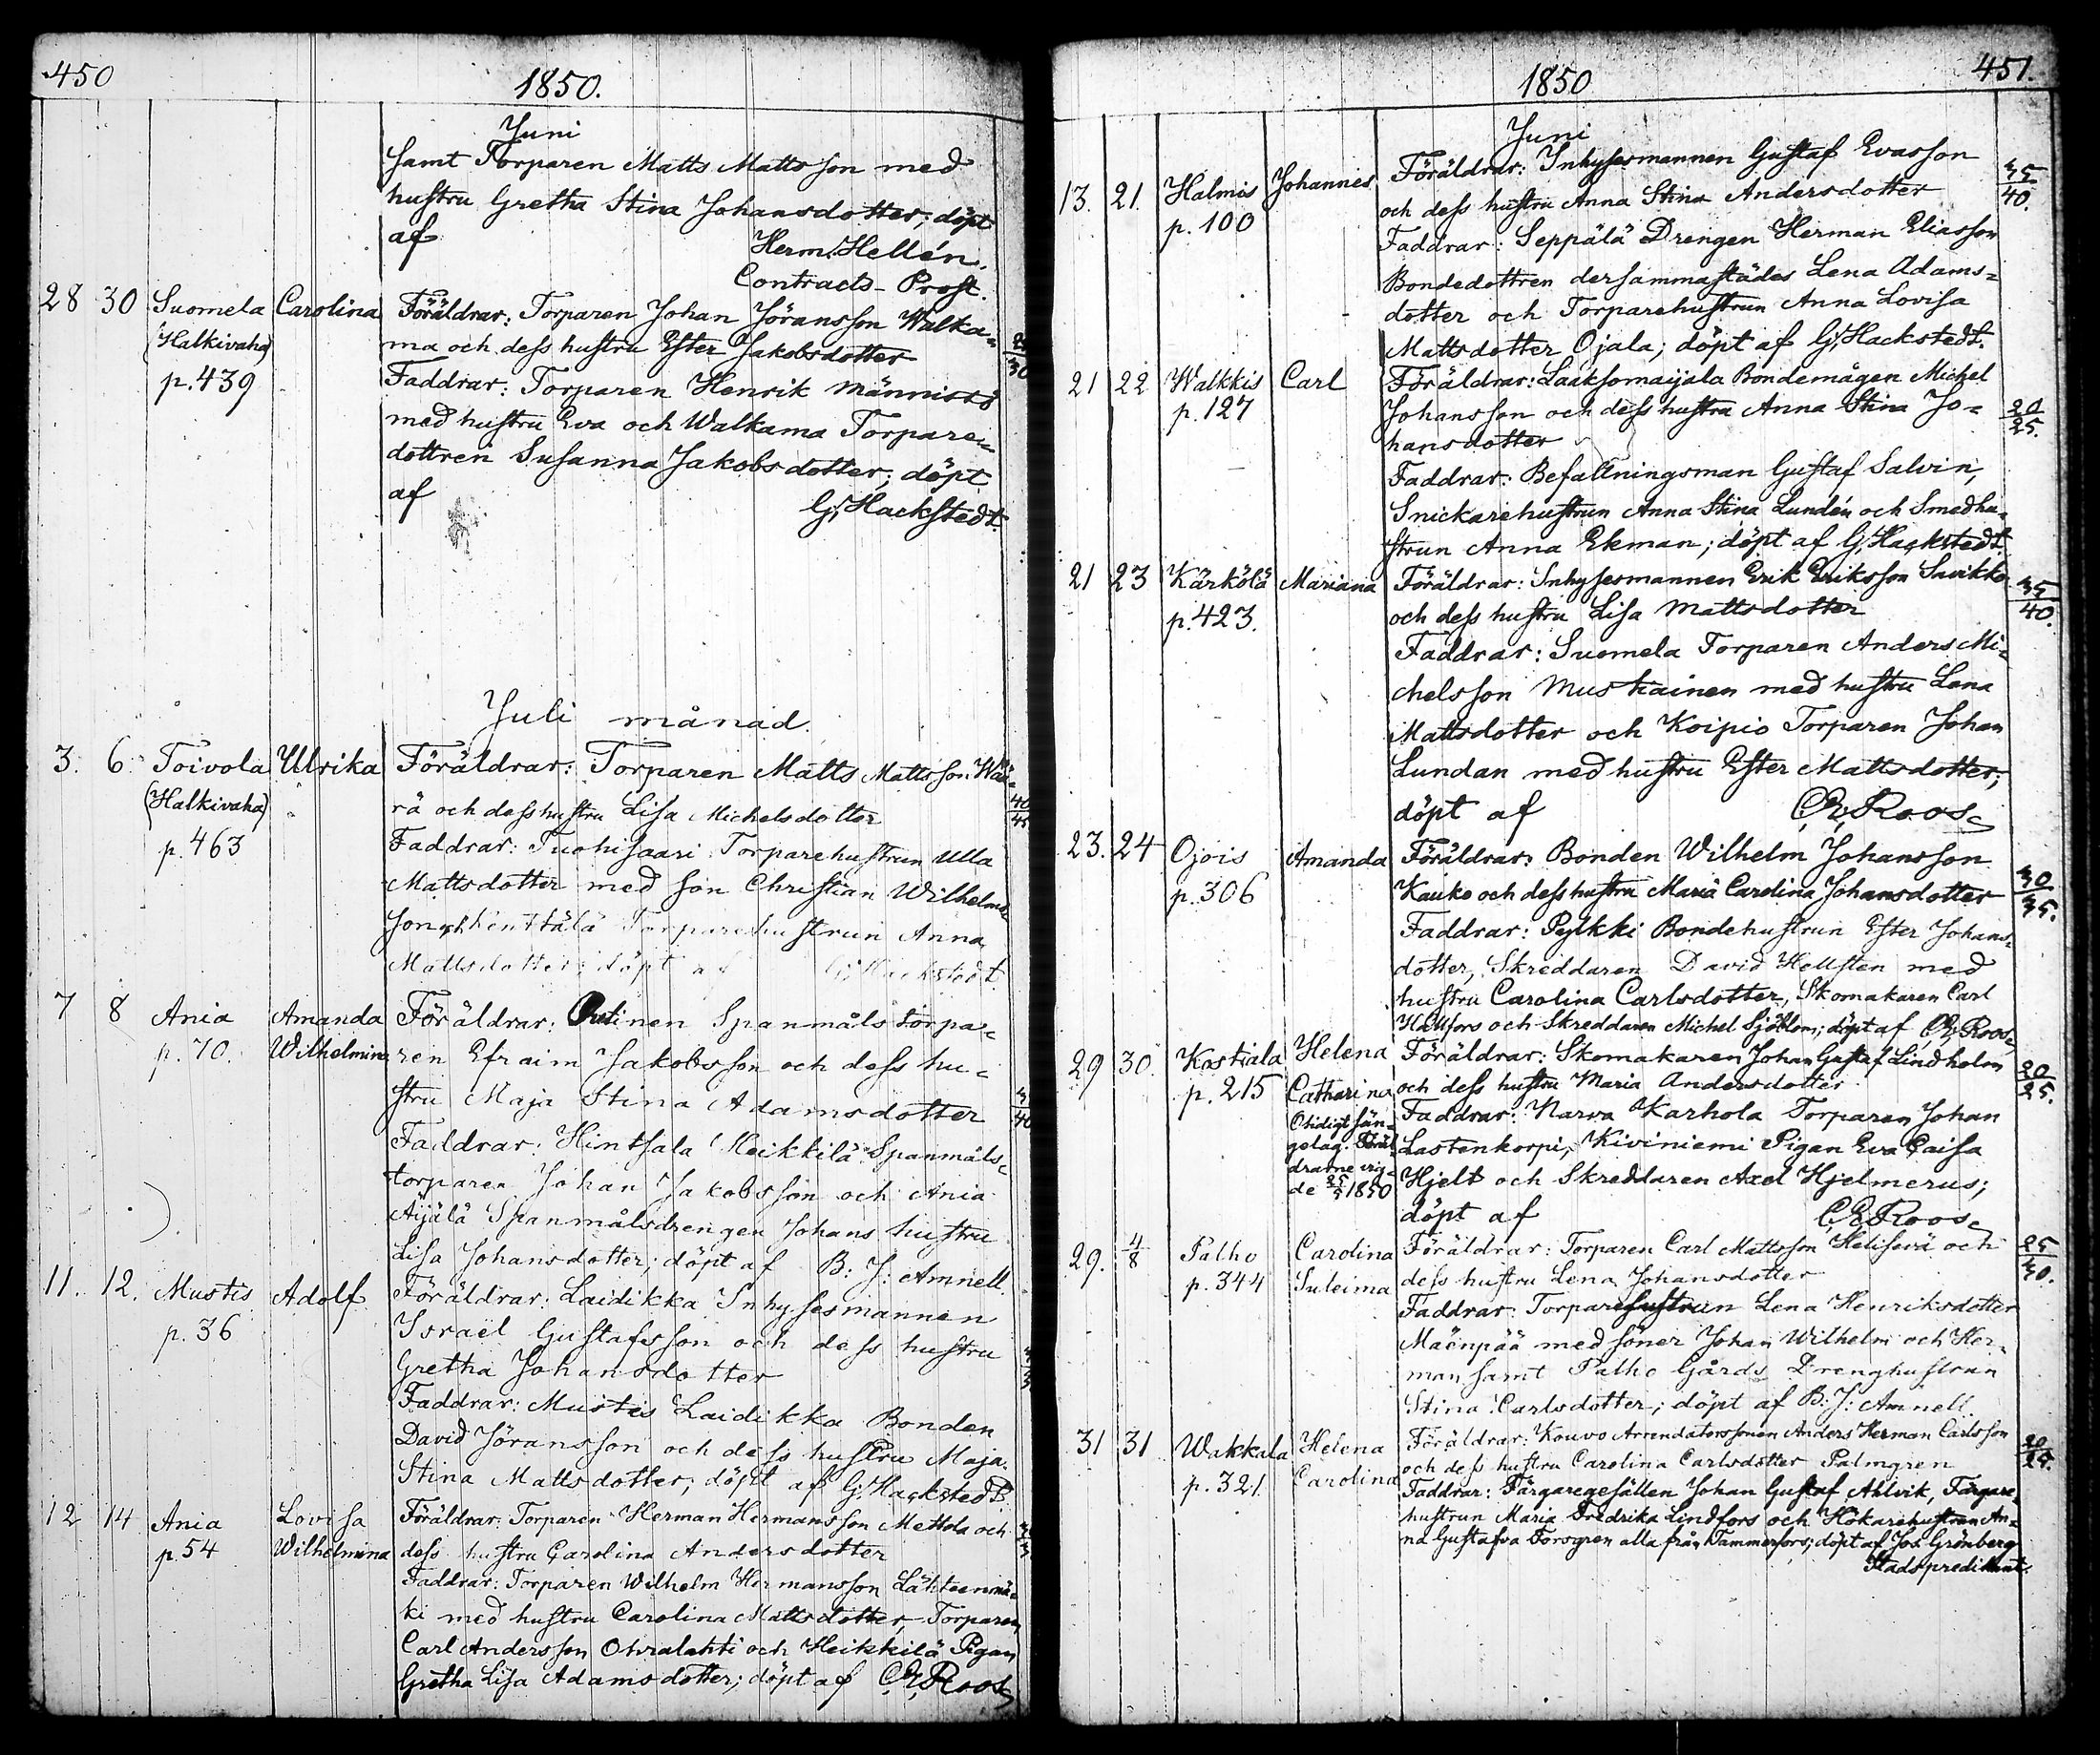 450
1850.
Juni
samt Torparen Matts Mattsson med
hustru Gretha Stina Johansdotter; döpt
af Herm. Hellén.
Contracts-Prost.
28 30 Suomela Carolina Föräldrar: Torparen Johan Jöransson Walka=
(Halkivaha) ma och dess hustru Ester Jakobsdotter
p. 439 Faddrar: Torparen Henrik Männistö
med hustru Eva och Walkama Torpare=
dottren Susanna Jakobsdotter; döpt
af G. Hackstedt.
Juli månad.
3. 6. Toivola Ulrika Föräldrar: Torparen Matts Mattsson
(Halkivaha) rä och dess hustru Lisa Michelsdotter 40/45
p. 463 Faddrar: Tuohisaari Torparehustrun Ulla
Mattsdotter med son Christian Wilhelms
son och Kenttälä Torparehustrun Anna
Mattsdotter; döpt af G. Hackstedt.
7 8 Ania Amanda Föräldrar: Outinen Spanmålstorpa=
p. 70. Wilhelmina ren Efraim Jakobsson och dess hu=
stru Maja Stina Adamsdotter
Faddrar: Hintsala Heikkilä Spanmåls=
torparen Johan Jakobsson och Ania
Äijälä Spanmålsdrengen Johans hustru
Lisa Johansdotter; döpt af B: J: Amnell.
11. 12. Mustis Adolf Föräldrar: Laidikka Inhysesmannen
p. 36 Israel Gustafsson och dess hustru
Gretha Johansdotter
Faddrar: Mustis Laidikka Bonden
David Jöransson och dess hustru Maja
Stina Mattsdotter; döpt af G. Hackstedt.
12 14 Ania Lovisa Föräldrar: Torparen Herman Hermansson Mettola och
p. 54 Wilhelmina dess hustru Carolina Andersdotter
Faddrar: Torparen Wilhelm Hermansson Lähteenmä=
ki med hustru Carolina Mattsdotter, Torparen
Carl Andersson Ohralahti och Heikkilä Pigan
Gretha Lisa Adamsdotter; döpt af C. E. Roos
451.
1850
Juni
13. 21. Halmis Johannes Föräldrar: Inhysesmannen Gustaf Evasson 35/40.
p. 100 och dess hustru Anna Stina Andersdotter
Faddrar: Seppälä Drengen Herman Eliasson
Bondedottren dersammastädes Lena Adams=
dotter och Torparehustrun Anna Lovisa
Mattsdotter Ojala; döpt af G. Hackstedt.
21 22 Walkkis Carl Föräldrar: Laaksomaijala Bondemågen Michel
p. 127 Johansson och dess hustru Anna Stina Jo= 20/25.
hansdotter
Faddrar: Befallningsman Gustaf Salvin,
Snickarehustrun Anna Stina Lundén och Smedhu=
strun Anna Ekman; döpt af G. Hackstedt
21 23 Kärkölä Mariana Föräldrar: Inhysesmannen Erik Eriksson Savikko 35/40.
p. 423. och dess hustru Lisa Mattsdotter
Faddrar: Suomela Torparen Anders Mi=
chelsson Muskainen med hustru Lena
Mattsdotter och Koipio Torparen Johan
Lundan med hustru Ester Mattsdotter;
döpt af C. E. Roos
23. 24 Ojois Amanda Föräldrar: Bonden Wilhelm Johansson
p. 306 Kauko och dess hustru Maria Carolina Johansdotter 30/35.
Faddrar: Pylkki Bondehustrun Ester Johans=
dotter, Skreddaren David Hellsten med
hustru Carolina Carlsdotter, Skomakaren Carl
Hallfors och Skreddaren Michel Sjöblom; döpt af C. E. Roos
29 30. Kostiala Helena Föräldrar: Skomakaren Johan Gustaf Lindholm 20/25.
p. 215 Catharina och dess hustru Maria Andersdotter
Otidigt sän= Faddrar: Narva Karhola Torparen Johan
gelag. Föräl Lastenkorpi, Kiviniemi Pigan Eva Caisa
drarne vig= Hjelt och Skreddaren Axel Hjelmerus;
de 25/5 1850 döpt af C. E. Roos
29. 4/8 Palho Carolina Föräldrar: Torparen Carl Mattsson Helisevä och 25/30.
p. 344 Suleima dess hustru Lena Johansdotter
Faddrar: Torparehustrun Lena Henriksdotter
Mäenpää med söner Johan Wilhelm och Her=
man samt Palho Gårds Drenghustrun
Stina Carlsdotter; döpt af B: J: Amnell
31 31 Wakkala Helena Föräldrar: Kouvo Arrendatorssonen Anders Herman Carlsson
p. 321. Carolina och dess hustru Carolina Carlsdotter Palmgren 20/25.
Faddrar: Färgaregesällen Johan Gustaf Ahlvik, Färgare
hustrun Maria Fredrika Lindfors och Hökarehustrun An=
na Gustafva Forsgren alla från Tammerfors; döpt af Jos. Grönberg
Stadspredikant.